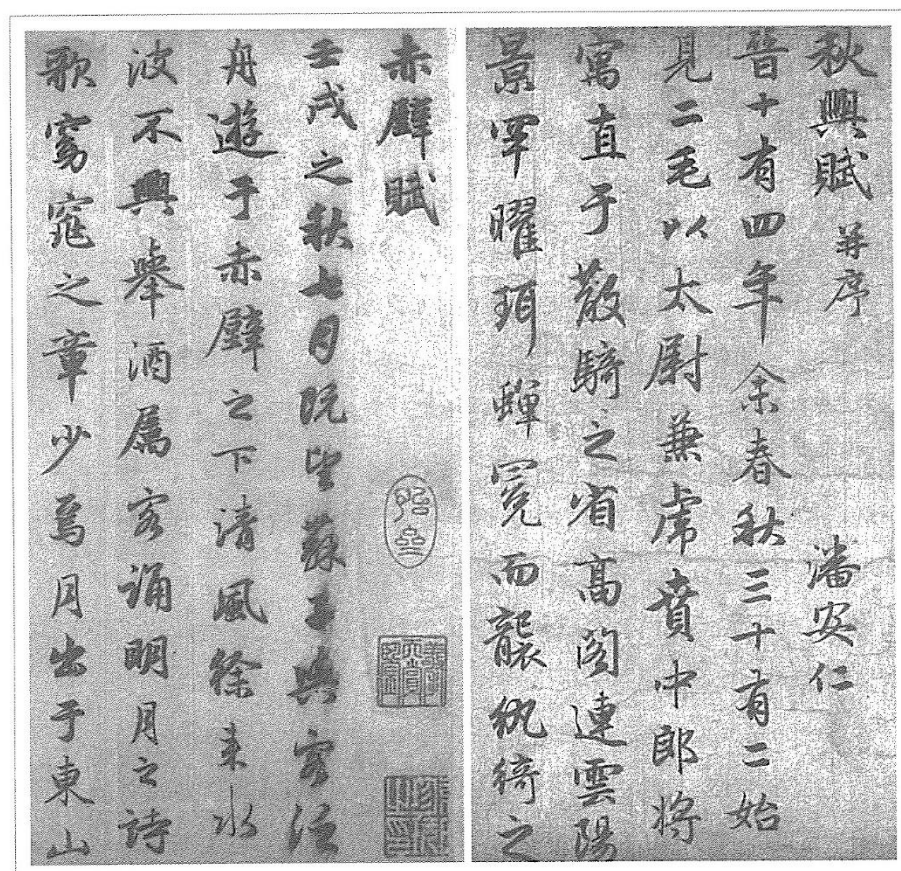 秋興賦 并序 潘安仁
晉十有四年余春秋三十有二始
見二毛以太尉兼虎賁中郎將
寓直于散騎之省高閣連雲陽
景罕曜珥蟬冕而襲紈綺之
赤壁賦
壬戌之秋七月既望蘇子與客泛
舟遊于赤壁之下清風徐来水
波不興舉酒属客誦明月之詩
歌窈窕之章少焉月出于東山